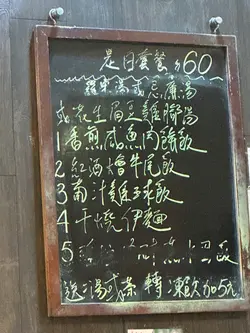 是日套餐 $60
羅宋湯或忌廉湯
或花生眉豆雞腳湯
1 香煎咸魚肉餅飯
2 紅酒燴牛尾飯
3 葡汁雞球飯
4 干燒伊麵
5 飯
送：湯或茶 轉凍飲加5元